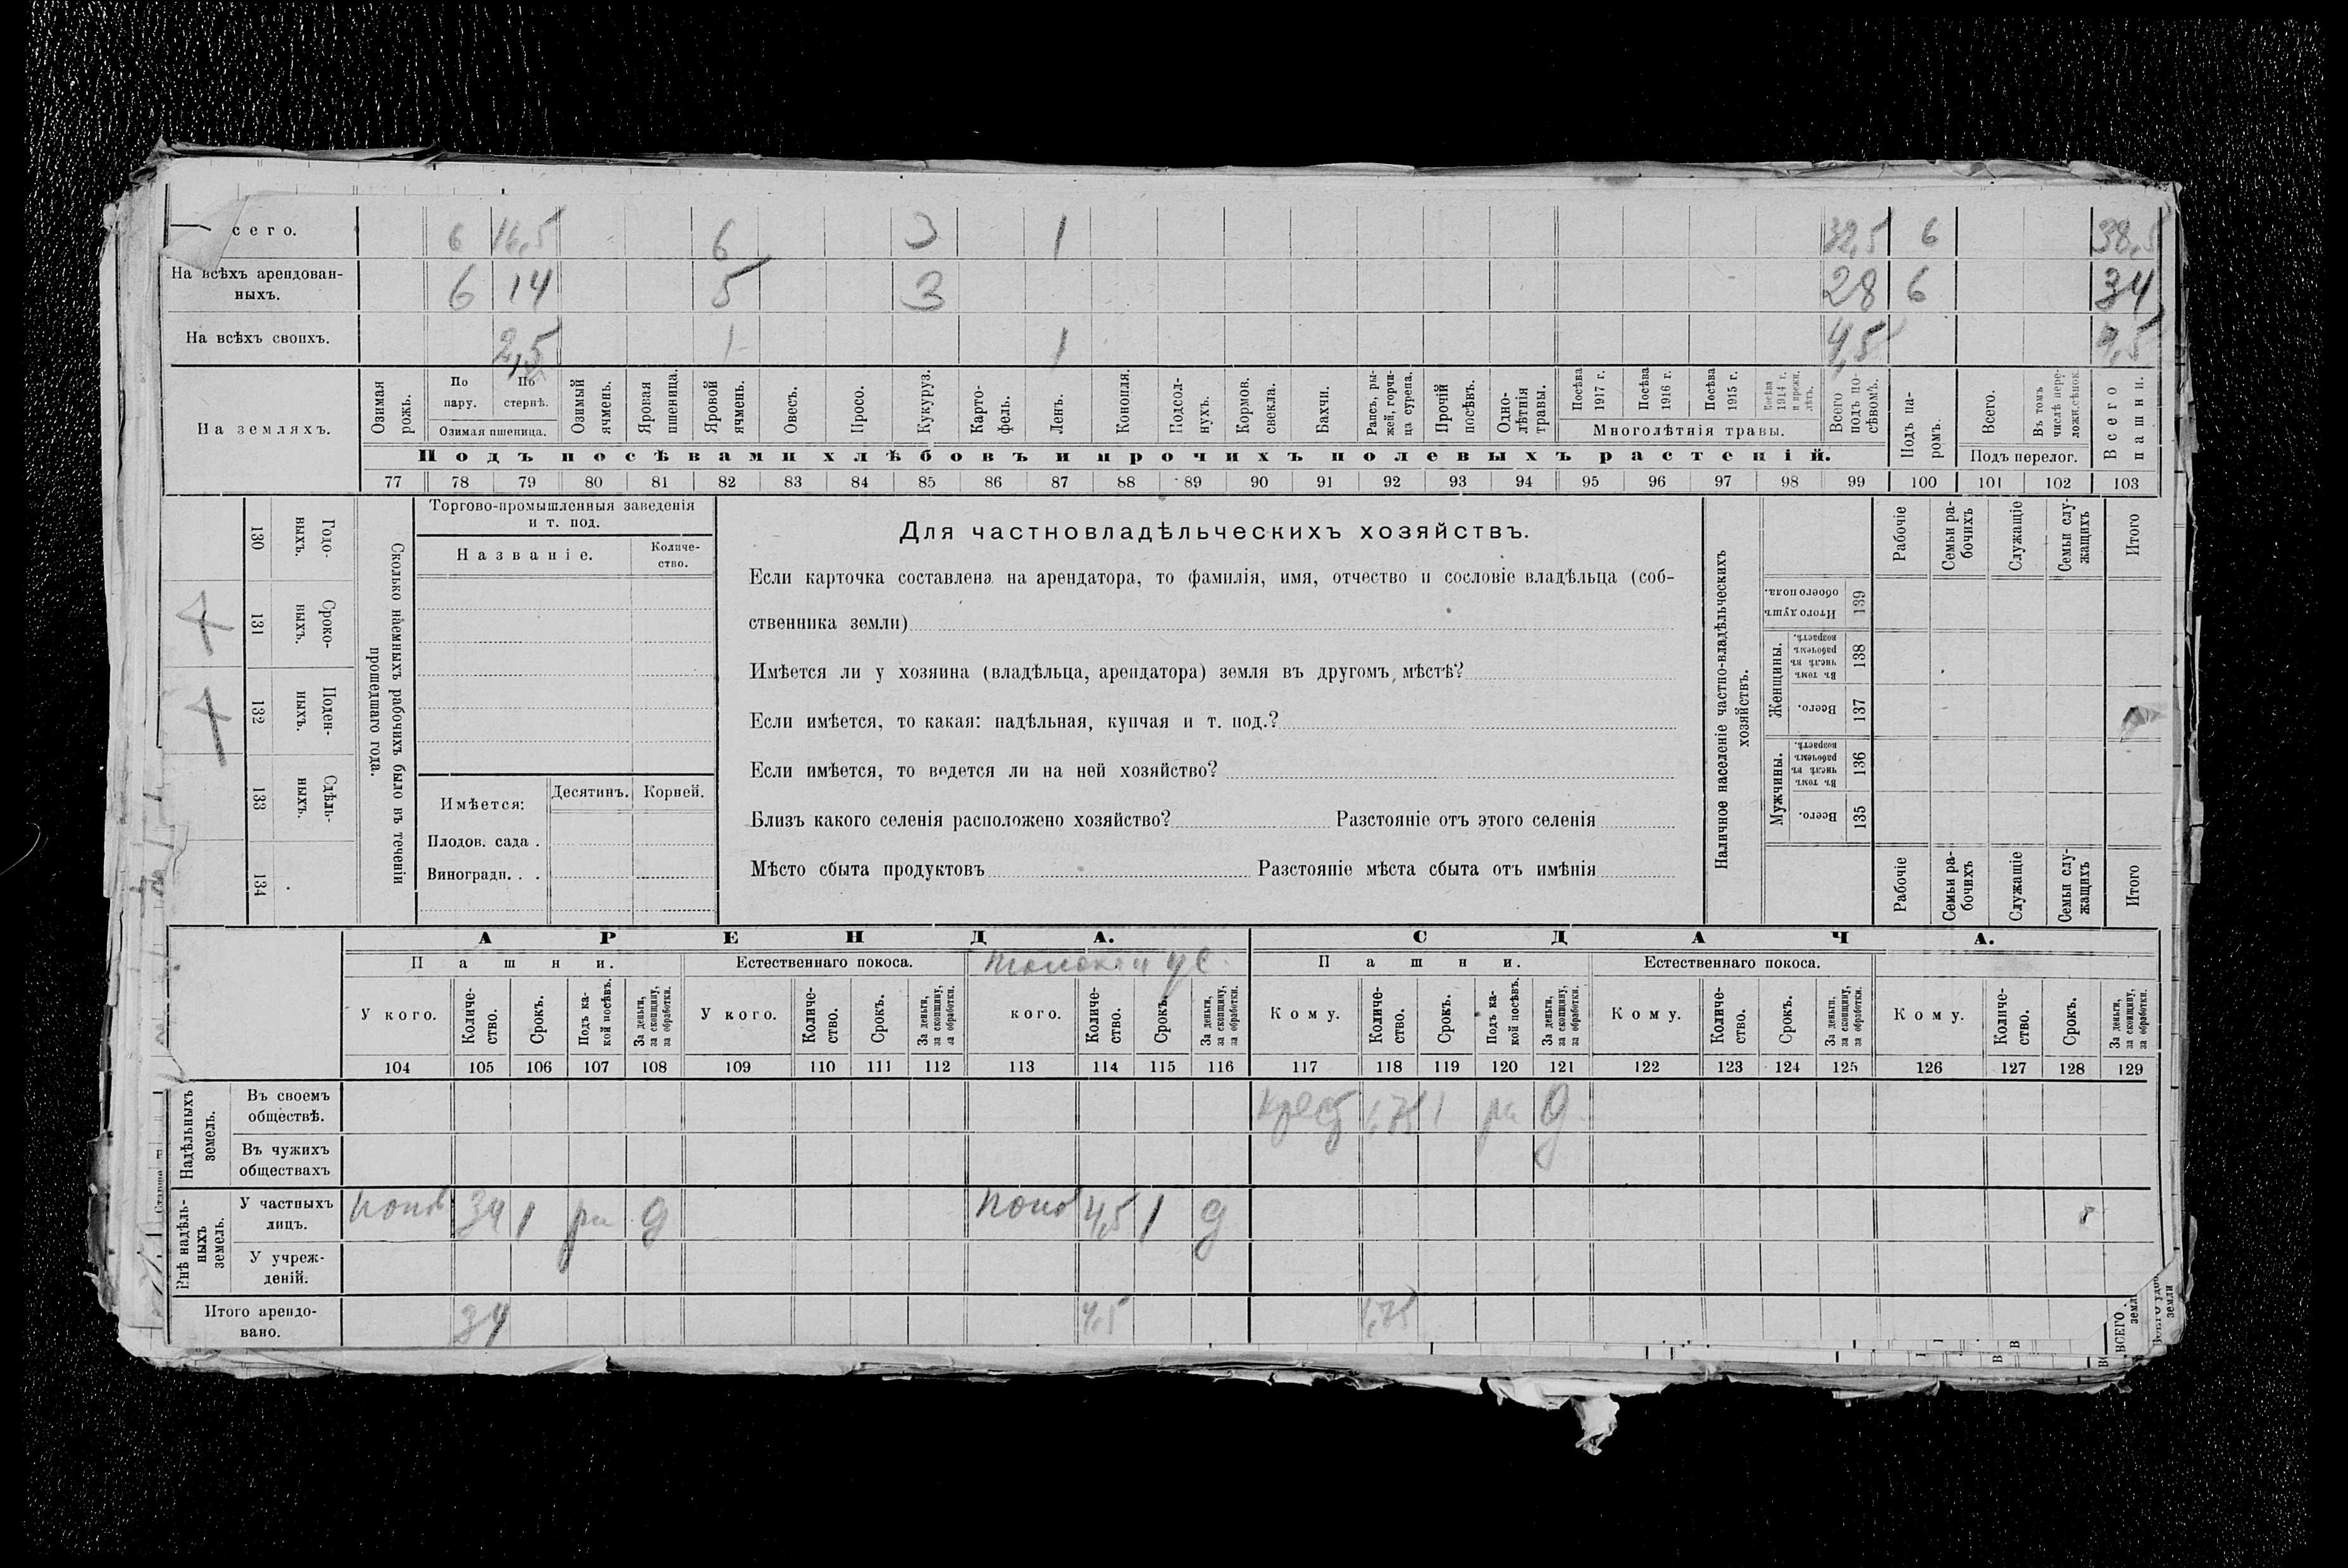 сего. 6 16,5 6 3 1 32,5 6 38,5
На всѣхъ арендован-
ныхъ. 6 14 5 3 28 6 34
На всѣхъ своихъ. 2,5 1 1 4,5 4,5
На земляхъ.
Озимая рожь.
По пару.
По стернѣ.
Озимая пшеница.
Озимый ячмень.
Яровая пшеница.
Яровой ячмень.
Овесъ.
Просо.
Кукуруз.
Карто-
фель.
Ленъ.
Конопля.
Подсол-
нухъ.
Кормов. свекла.
Бахчи.
Рапсъ, ры-
жей, горчи-
ца сурепа.
Прочій посѣвъ.
Одно-
лѣтнія травы.
Посѣва 1917 г.
Посѣва 1916 г.
Посѣва 1915 г.
Посѣва 1914 г. и прежн. лѣтъ.
Многолѣтнія травы.
Всего подъ по-
сѣвомъ.
Подъ па-
ромъ.
Всего.
Въ томъ числѣ пере-
ложн. сѣнок.
Подъ перелог.
Всего пашни.
Подъ посѣвами хлѣбовъ и прочихъ полевыхъ растеній.
77 78 79 80 81 82 83 84 85 86 87 88 89 90 91 92 93 94 95 96 97 98 99 100 101 102 103
130 Годо-
ныхъ.
131 Сроко-
выхъ.
132 Поден-
ныхъ.
133 Сдѣль-
ныхъ.
134
Сколько наемныхъ рабочихъ было въ теченіи
прошедшаго года.
Торгово-промышленныя заведенія
и т. под.
Названіе.
Количе-
ство.
Имѣется:
Десятинъ.
Корней.
Плодов. сада .
Виноградн. . .
Для частновладѣльческихъ хозяйствъ.
Если карточка составлена на арендатора, то фамилія, имя, отчество и сословіе владѣльца (соб-
ственника земли)
Имѣется ли у хозяина (владѣльца, арендатора) земля въ другомъ мѣстѣ?
Если имѣется, то какая: надѣльная, купчая и т. под.?
Если имѣется, то ведется ли на ней хозяйство?
Близъ какого селенія расположено хозяйство? Разстояніе отъ этого селенія
Мѣсто сбыта продуктовъ Разстояніе мѣста сбыта отъ имѣнія
Наличное населеніе частно-владѣльческихъ
хозяйствъ.
Рабочіе
Семьи ра-
бочихъ
Служащіе
Семьи слу-
жащихъ
Итого
Итого душъ обоего пола. 139
Женщины.
Въ томъ числѣ въ рабочемъ возрастѣ. 138
Всего. 137
Мужчины.
Въ томъ числѣ въ рабочемъ возрастѣ. 136
Всего. 135
Рабочіе
Семьи ра-
бочихъ
Служащіе
Семьи слу-
жащихъ
Итого
АРЕНДА.
СДАЧА.
Пашни.
Естественнаго покоса.
Пашни.
Естественнаго покоса.
У кого.
Количе-
ство.
Срокъ.
Подъ ка-
кой посѣвъ.
За деньги, за скопщину, за обработки.
У кого.
Количе-
ство.
Срокъ.
За деньги, за скопщину, за обработки.
кого.
Количе-
ство.
Срокъ.
За деньги, за скопщину, за обработки.
Кому.
Количе-
ство.
Срокъ.
Подъ ка-
кой посѣвъ.
За деньги, за скопщину, за обработки.
Кому.
Количе-
ство.
Срокъ.
За деньги, за скопщину, за обработки.
Кому.
Количе-
ство.
Срокъ.
За деньги, за скопщину, за обработки.
104 105 106 107 108 109 110 111 112 113 114 115 116 117 118 119 120 121 122 123 124 125 126 127 128 129
Надѣльныхъ
земель.
Въ своемъ
обществѣ. 1,75 1 д
Въ чужихъ
обществахъ
Внѣ надѣль-
ныхъ
земель.
У частныхъ
лицъ. 34 1 д 4,5 1 д
У учреж-
деній.
Итого арендо-
вано. 34 4,5 1,75
ВСЕГО
земли